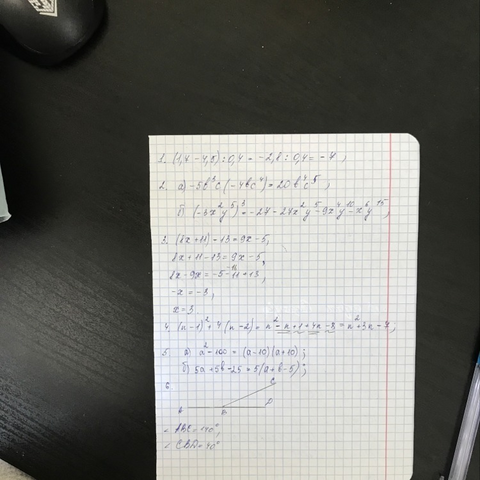 1. (1,4 - 4,2) : 0,4 = -2,8 : 0,4 = -7 ;
2. а) -5b³c (-4bc⁴) = 20b⁴c⁵ ;
б) (-3x²y⁵)³ = -27 - 27x²y⁵ - 9x⁴y¹⁰ - x⁶y¹⁵ ;
3. (8x + 11) - 13 = 9x - 5 ;
8x + 11 - 13 = 9x - 5 ;
8x - 9x = -5 - 11 + 13 ;
-x = -3 ;
x = 3
4. (n-1)² + 4(n-2) = n² - n + 1 + 4n - 8 = n² + 3n - 7 ;
5. а) a² - 100 = (a-10)(a+10) ;
б) 5a + 5b - 25 = 5(a+b-5) ;
6
C
B
D
ABC = 140° ;
CBD = 40°